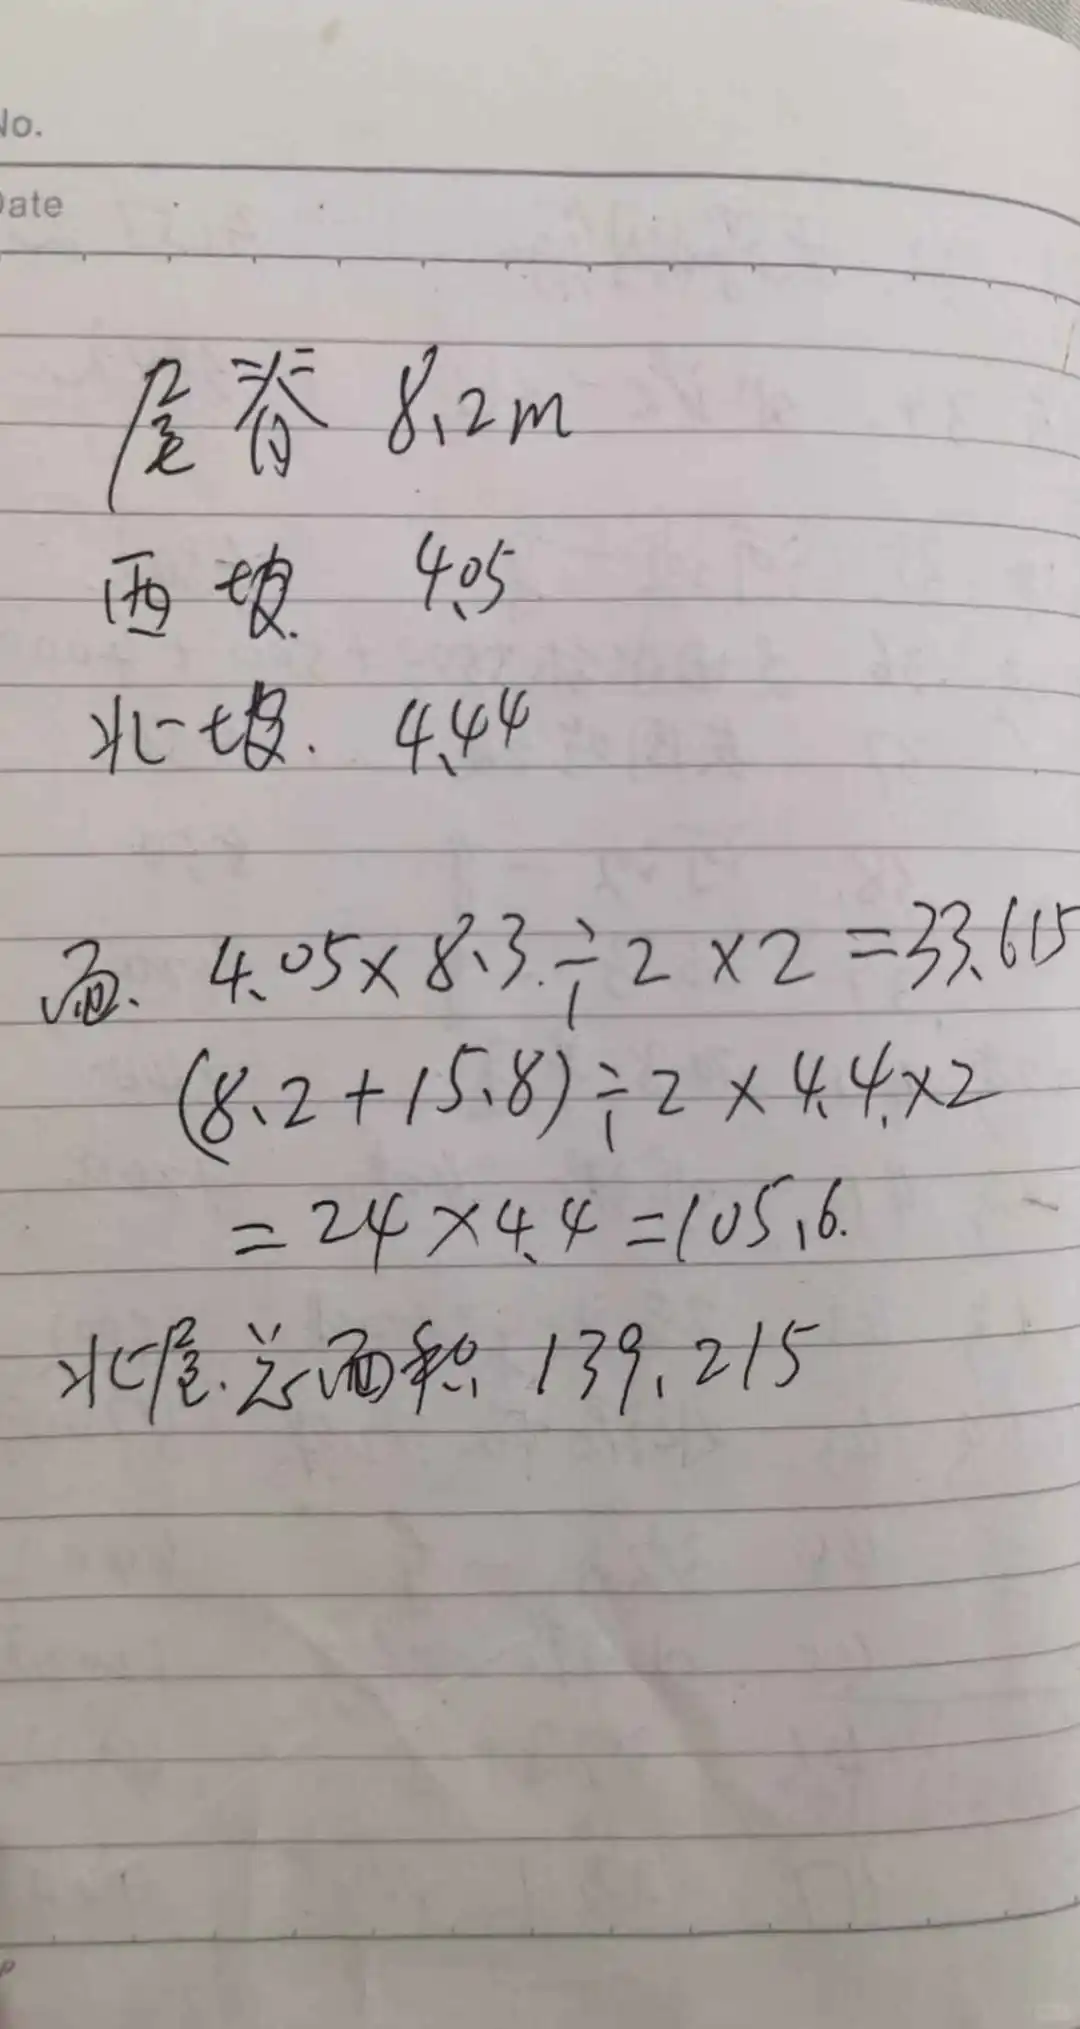 No.
Date
屋脊 8.2m
西坡. 4.05
北坡. 4.44
面. 4.05×8.3÷2×2=33.615
(8.2+15.8)÷2×4.4×2
=24×4.4=105.6.
北屋.总面积 139.215